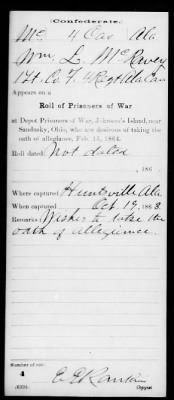 (Confederate.)
Mc 4 Cav Ala
Wm. L. McRavey
1 Lt. Co. F, 4 Regt Ala Cav.
Appears on a
Roll of Prisoners of War
at Depot Prisoners of War, Johnson's Island, near
Sandusky, Ohio, who are desirous of taking the
oath of allegiance, Feb. 13, 1864.
Roll dated Not dated
, 186 .
Where captured Huntsville Ala
When captured Oct 19, 1863.
Remarks: Wishes to take the
oath of allegiance.
Number of roll:
4
E E Rankin
Copyist.